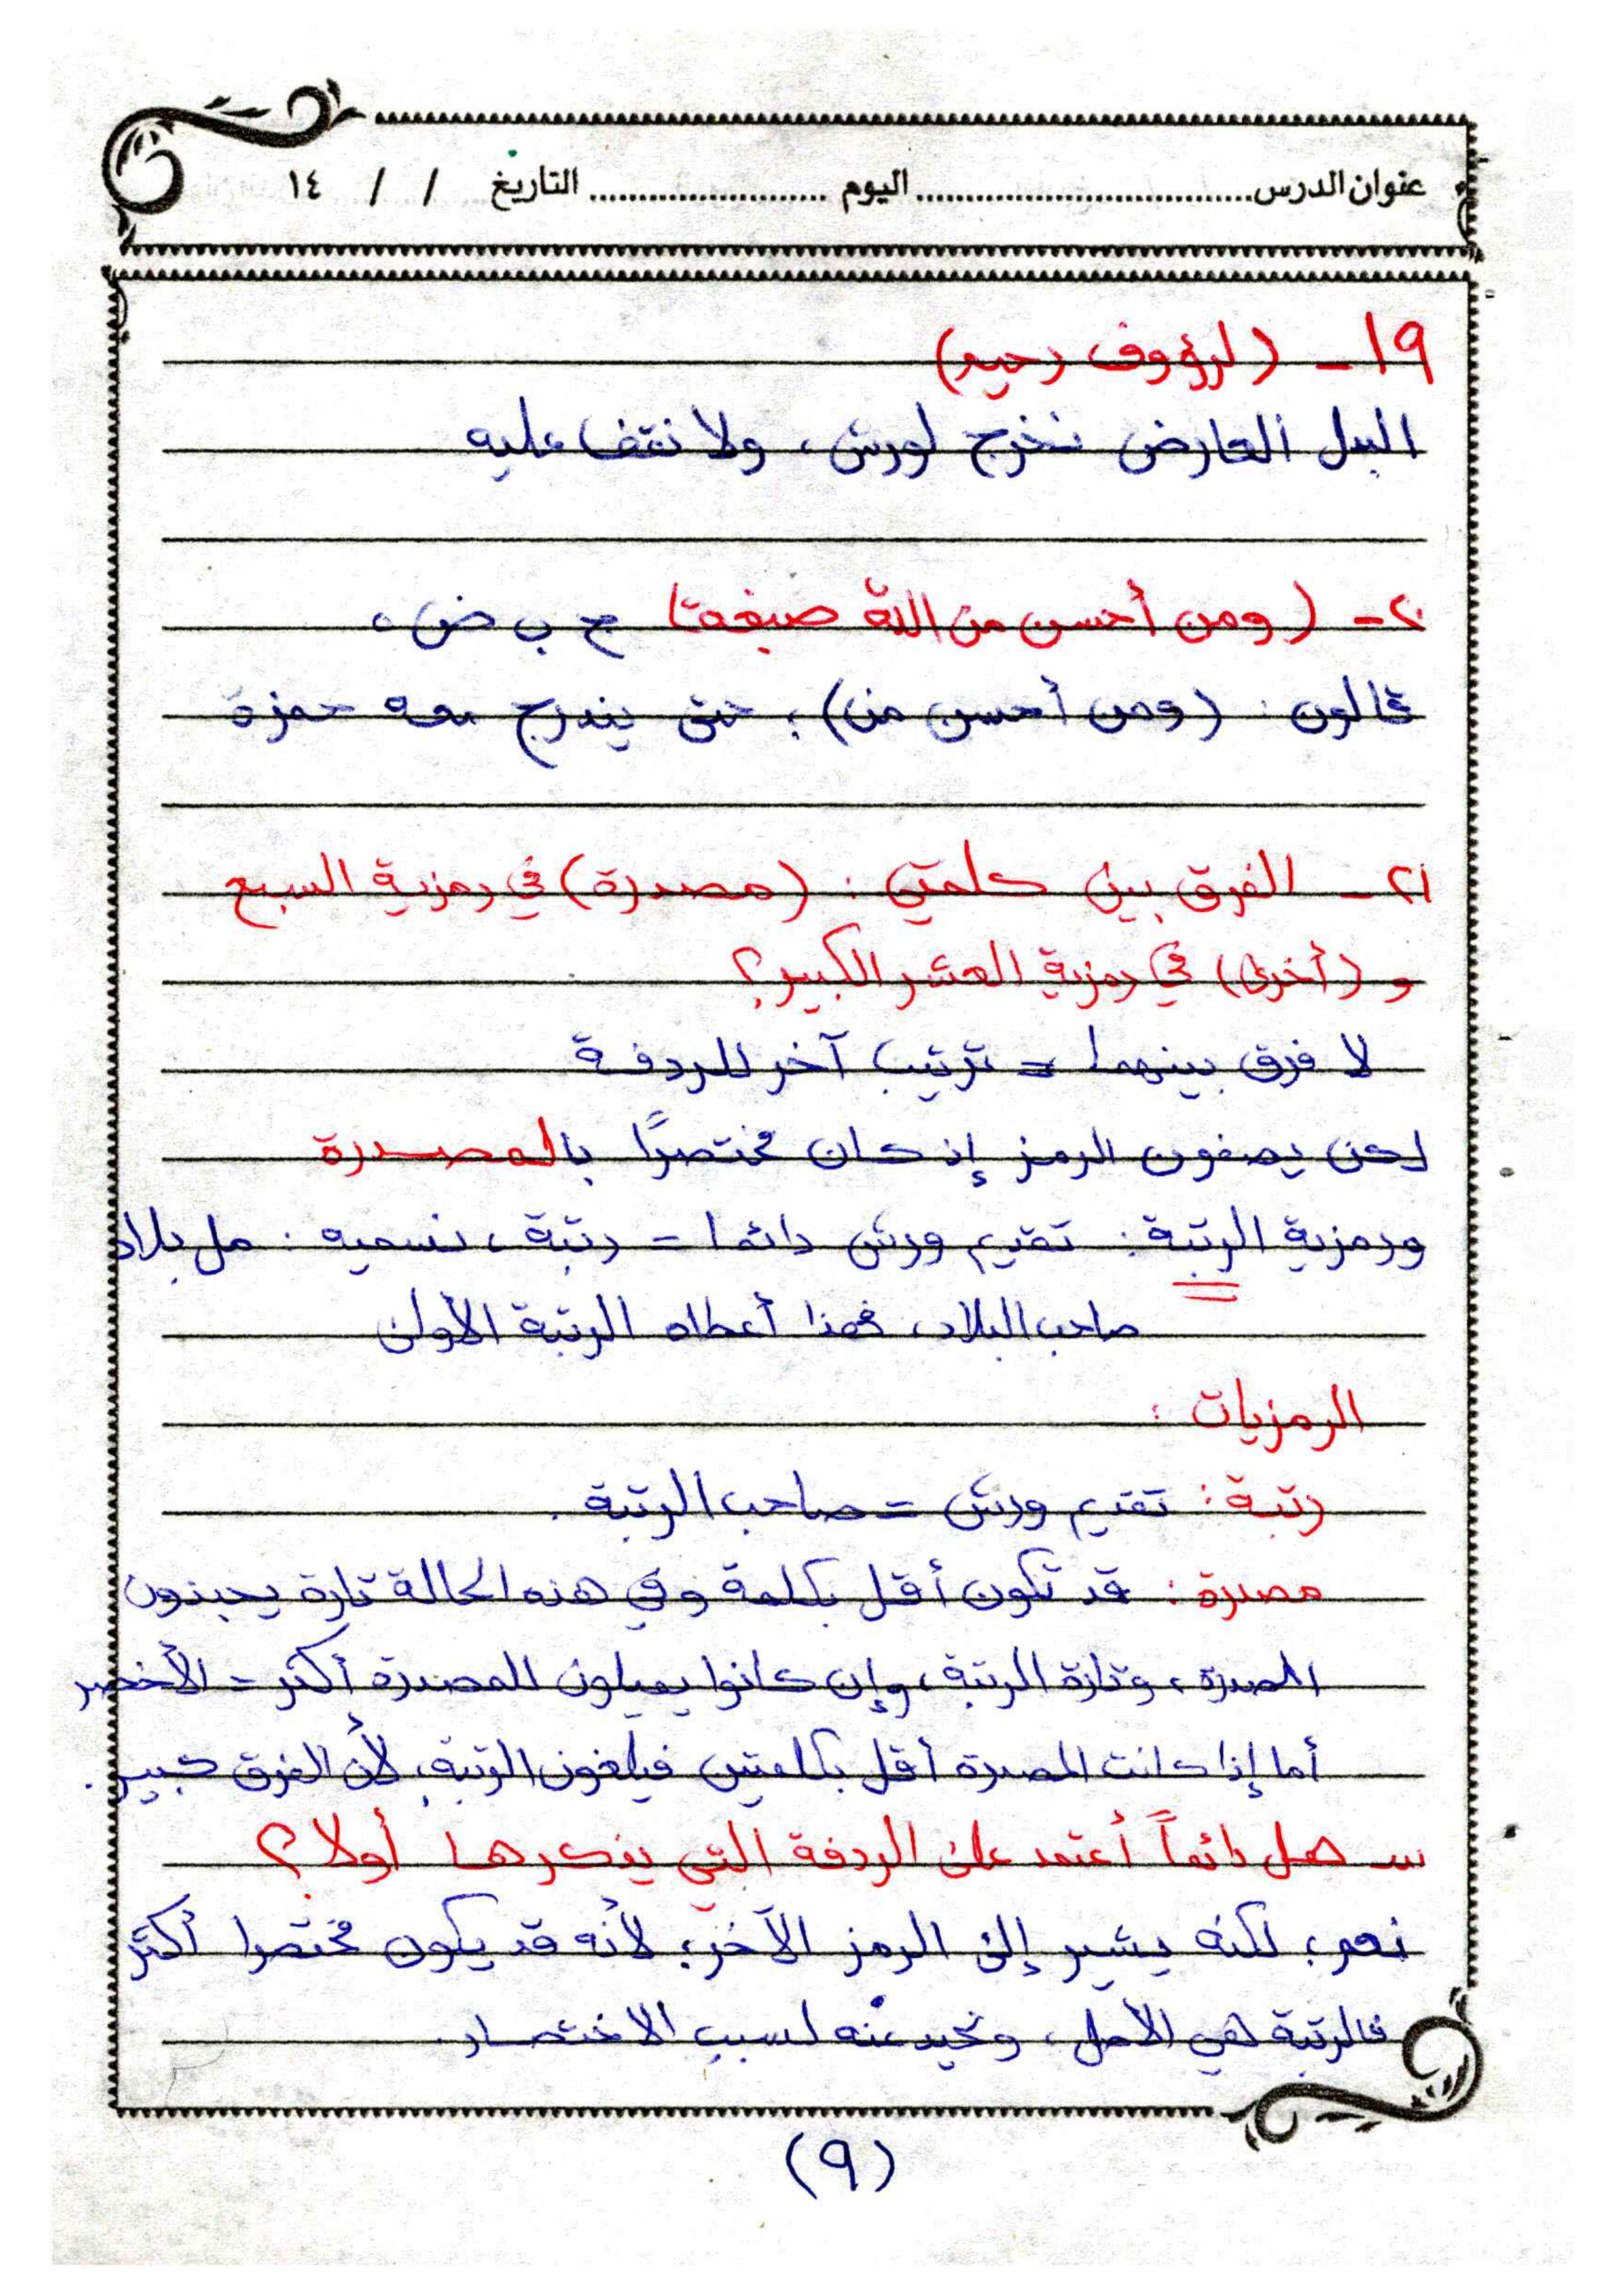 عنوان الدرس ........................ اليوم ........................ التاريخ / / ١٤
١٩ - (لرؤوف رحيم)
البدل العارض نخرج لورش، ولا نقف عليه
٢٠ - (ومن أحسن من الله صبغة) ح ب ض،
قالون: (ومن أحسن من)، حتى يندرج معه حمزة
٢١ - الفرق بين كلمتي: (مصدرة) في رمزية السبع
و (أخرى) في رمزية العشر الكبير؟
لا فرق بينهما = ترتيب آخر للردفة
لكن يصفون الرمز إن كان مختصرًا بالمصدرة
ورمزية الرتبة: تقديم ورش دائما = رتبة، نسميه:
صاحب البلاد، فهذا أعطاه الرتبة الأولى
الرمزيات:
رتبة: تقديم ورش = صاحب الرتبة.
مصدرة: قد تكون أقل بكلمة وفي هذه الحالة تارة يحبذون
المصدرة، وتارة الرتبة، وإن كانوا يميلون للمصدرة أكثر = الأخصر
أما إذا كانت المصدرة أقل بكلمتين فيلغون الرتبة، لأن الفرق كبير.
س هل دائماً أعتمد على الردفة التي يذكرها أولا؟
نعم، لكنه يشير إلى الرمز الآخر، لأنه قد يكون مختصرا أكثر
فالرتبة هي الأصل، ونحيد عنه لسبب الاختصار.
(٩)